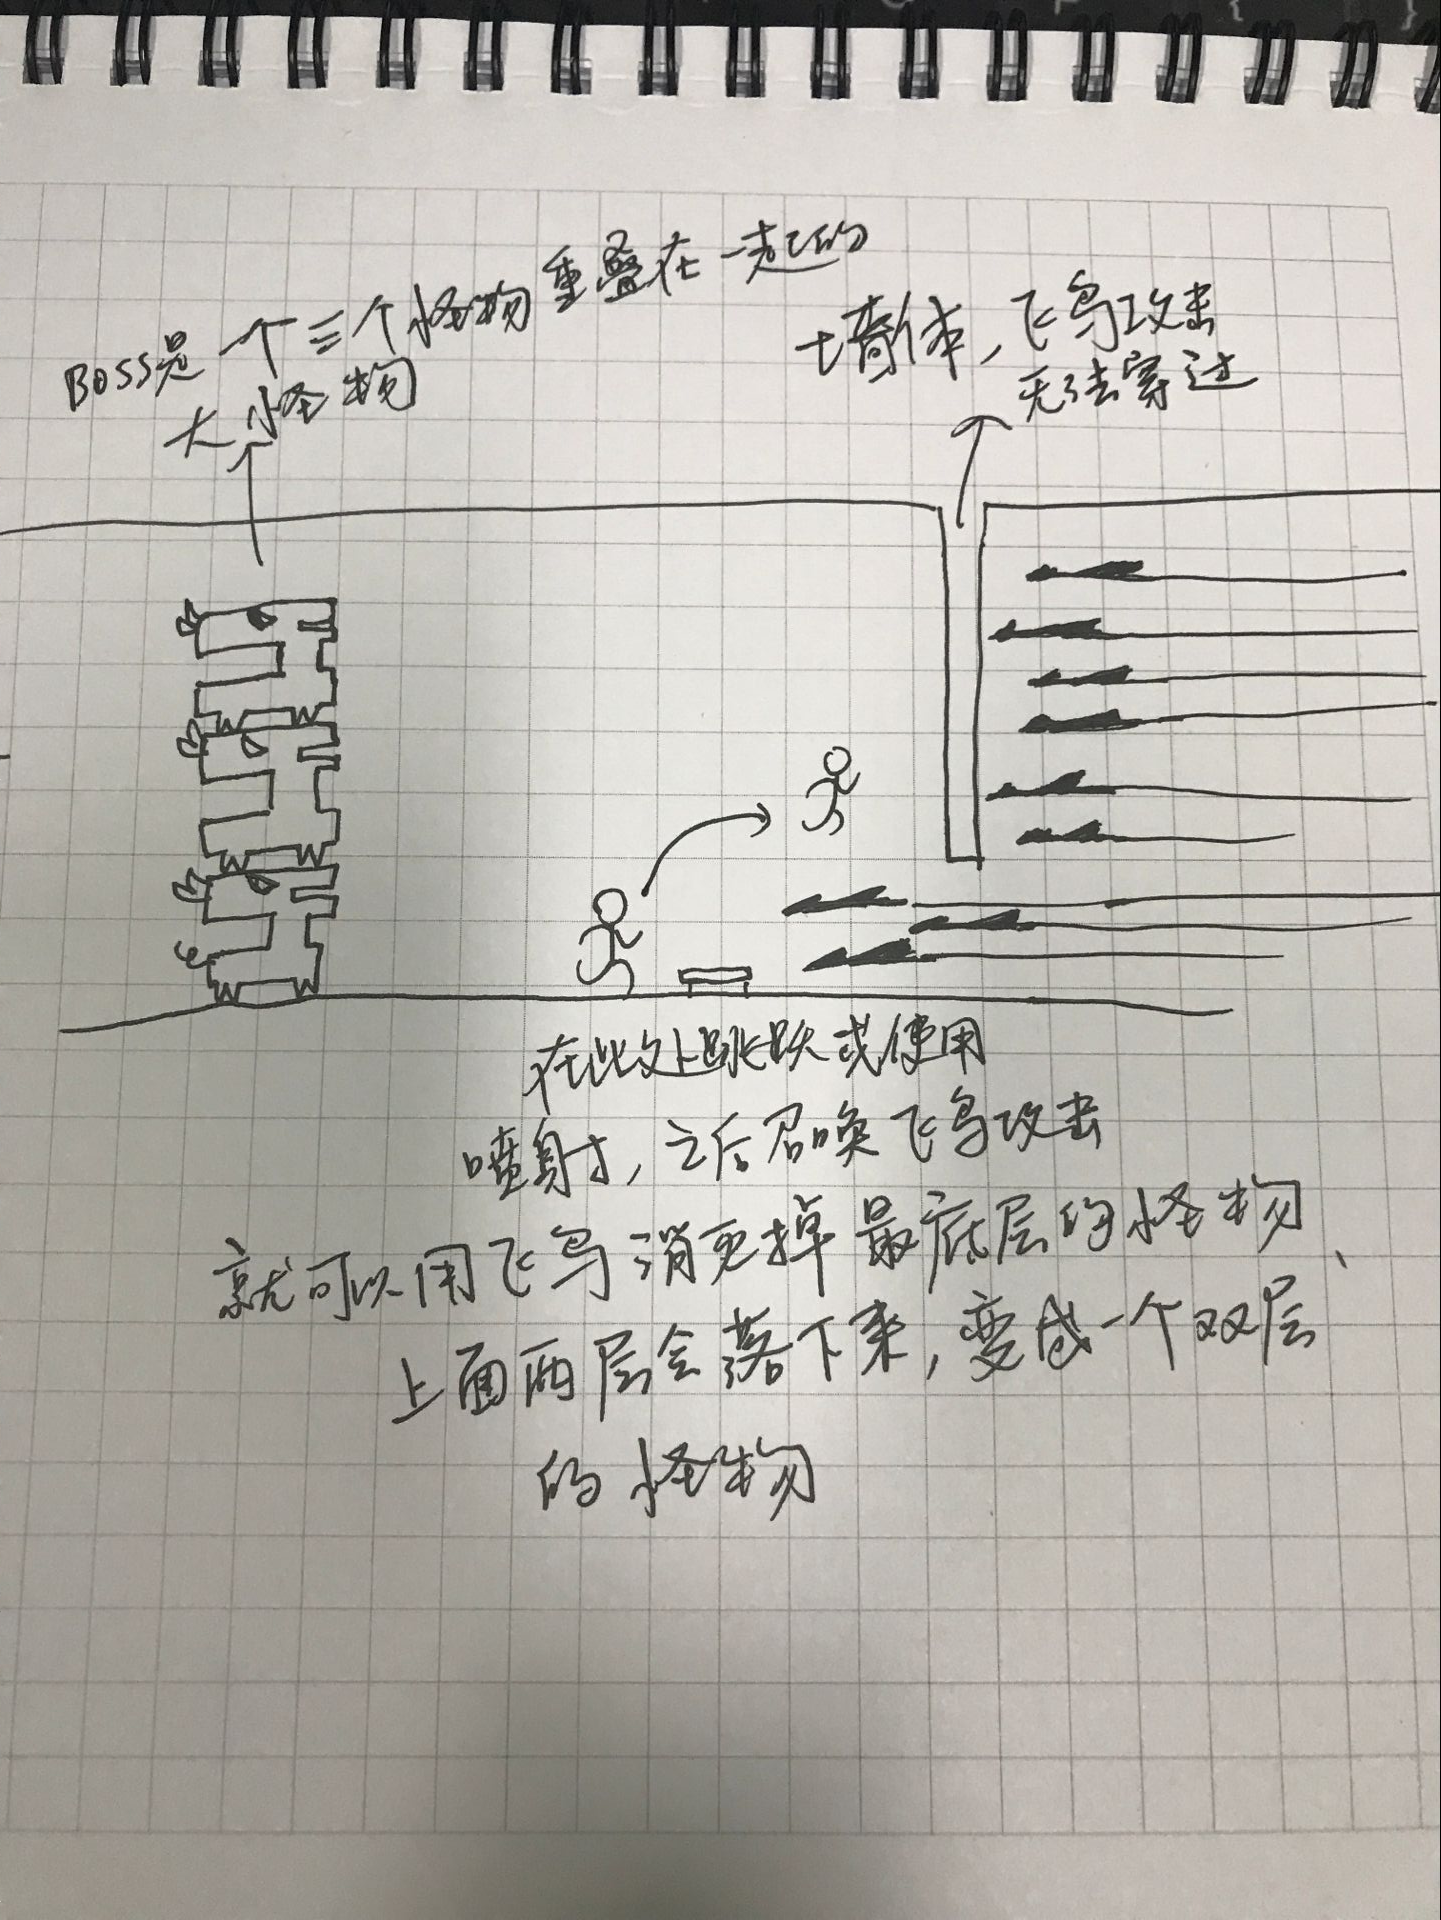 BOSS是一个三个怪物重叠在一起的
大怪物
墙体，飞鸟攻击
无法穿过
在此处跳跃或使用
喷射，之后召唤飞鸟攻击
就可以用飞鸟消灭掉最底层的怪物、
上面两层会落下来，变成一个双层
的怪物